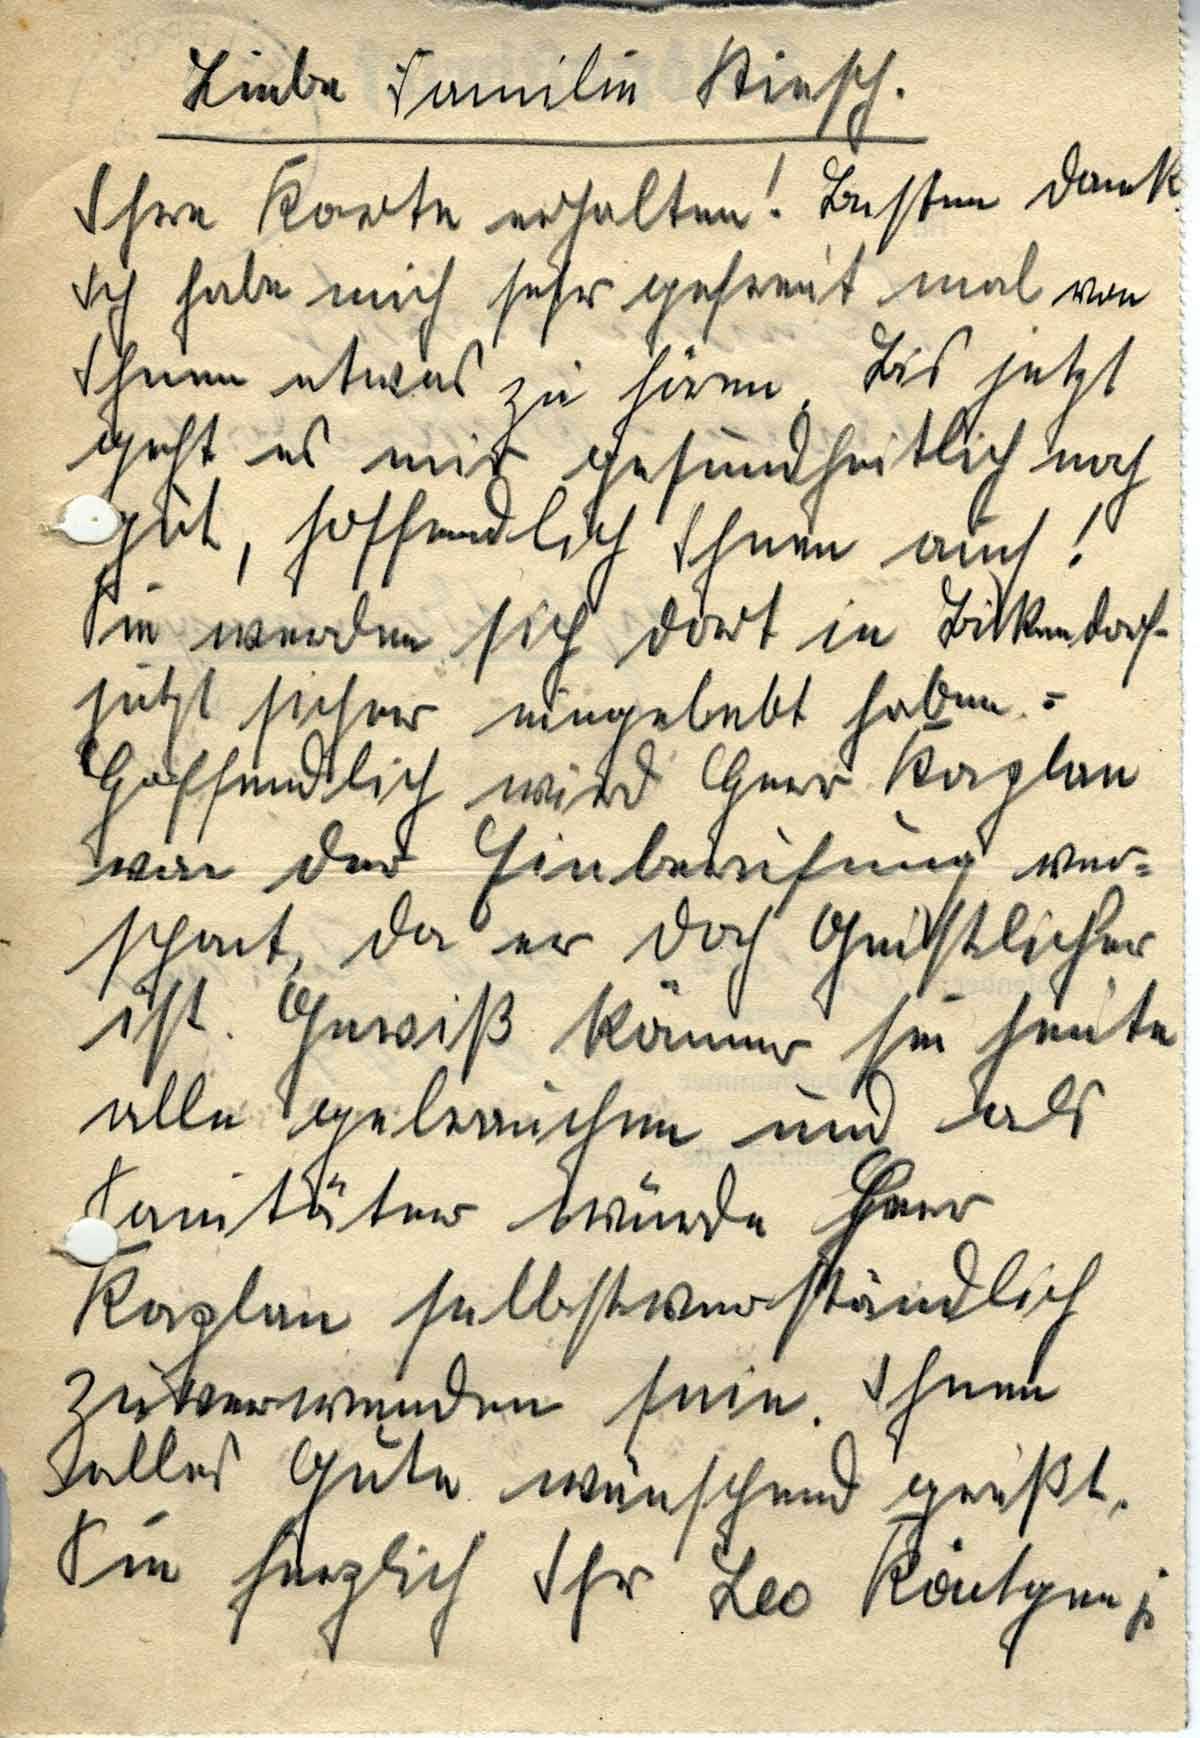 Liebe Familie Hirsch.
Ihre Karte erhalten! Besten Dank.
Ich habe mich sehr gefreut mal von
Ihnen etwas zu hören. Bis jetzt
geht es mir gesundheitlich noch
gut, hoffendlich Ihnen auch!
Sie werden sich dort in Birkendorf
jetzt sicher eingelebt haben.=
Hoffendlich wird Herr Kaplan
von der Einberufung ver=
schont, da er doch Geistlicher
ist. Gewiß können sie heute
alle gebrauchen und als
Sanitäter würde Herr
Kaplan selbstverständlich
zuverwenden sein. Ihnen
alles Gute wünschend grüßt.
Sie herzlich Ihr Leo Röntgen j.